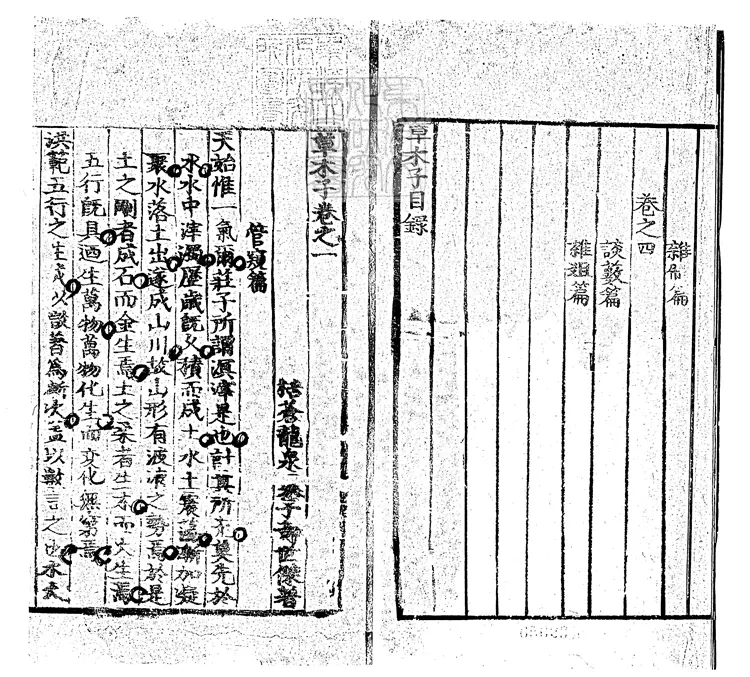 雜制篇
卷之四
談藪篇
雜俎篇
草木子目錄
草木子卷之一
括蒼龍泉葉子奇世傑著
管窺篇
天始惟一氣爾莊子所謂溟涬是也計其所先莫先於
水水中滓濁歷歲既久積而成土水土震蕩漸加凝
聚水落土出遂成山川故山形有波浪之勢焉於是
土之剛者成石而金生焉土之柔者生木而火生焉
五行既具迺生萬物萬物化生而變化無窮焉
洪範五行之生成以微著為漸次蓋以數言之由水火